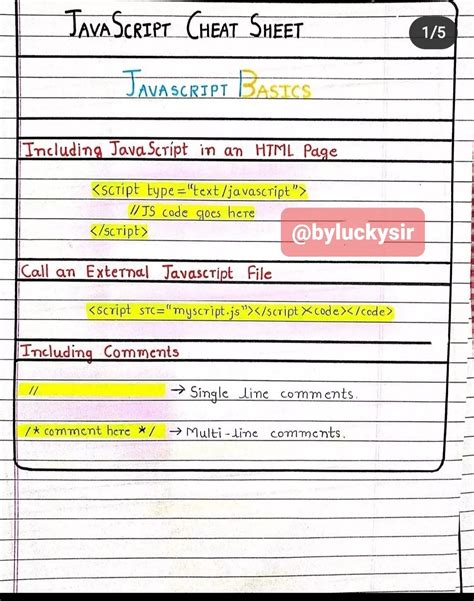 JAVASCRIPT CHEAT SHEET
1/5
JAVASCRIPT BASICS
Including JavaScript in an HTML Page
<script type="text/javascript">
//JS code goes here
</script>
@byluckysir
Call an External Javascript File
<script src="myscript.js"></script><code></code>
Including Comments
// → Single line comments.
/* comment here */ → Multi-line comments.